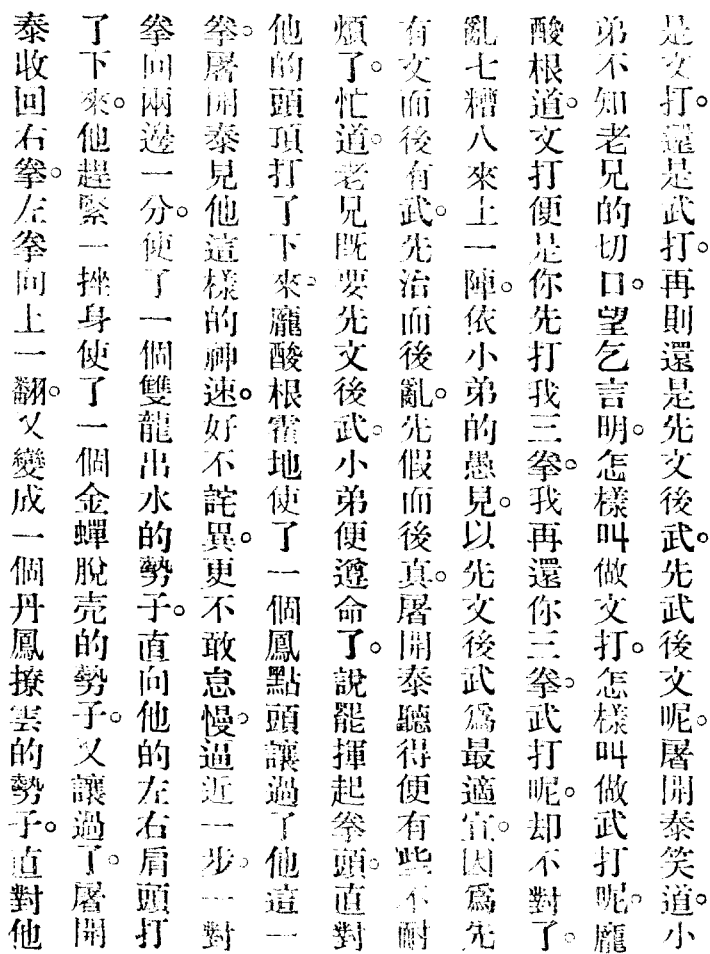 是文打。還是武打。再則還是先文後武。先武後文呢。屠開泰笑道。小
弟不知老兄的切口。望乞言明。怎樣叫做文打。怎樣叫做武打呢。龐
酸根道。文打便是你先打我三拳。我再還你三拳。武打呢。却不對了。
亂七糟八來上一陣。依小弟的愚見。以先文後武爲最適宜。因爲先
有文而後有武。先治而後亂。先假而後真。屠開泰聽得便有些不耐
煩了。忙道。老兄既要先文後武。小弟便遵命了。說罷揮起拳頭。直對
他的頭頂打了下來。龐酸根霍地使了一個鳳點頭讓過了他這一
拳。屠開泰見他這樣的神速。好不詫異。更不敢怠慢。逼近一步。一對
拳向兩邊一分。使了一個雙龍出水的勢子。直向他的左右肩頭打
了下來。他趕緊一挫身使了一個金蟬脫壳的勢子。又讓過了。屠開
泰收回右拳。左拳向上一翻。又變成一個丹鳳撩雲的勢子。直對他